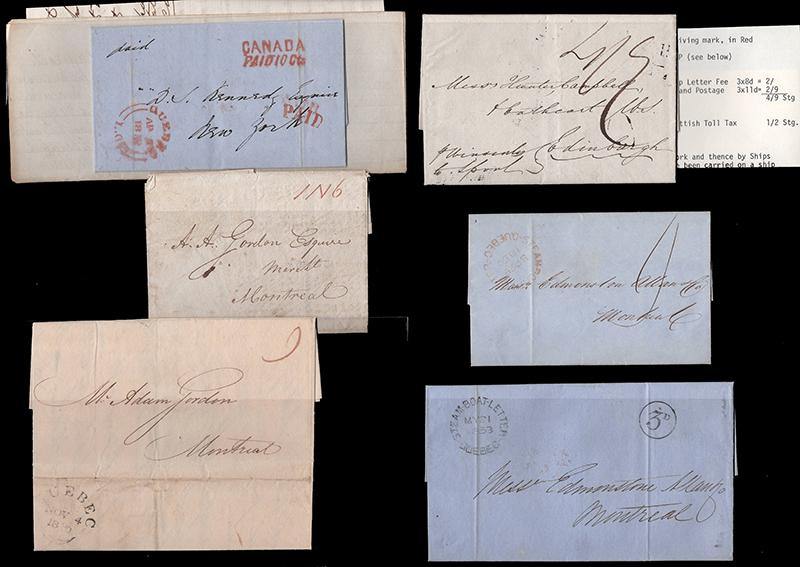 paid
CANADA
PAID 10 Cts
D. S. Kennedy Esquire
New York
PAID
QUEBEC
Messrs Hunter Campbell
& Cathcart
Edinburgh
iving mark, in Red
P (see below)
p Letter Fee 3x8d = 2/
and Postage 3x11d= 2/9
4/9 Stg
ttish Toll Tax 1/2 Stg.
ork and thence by Ships
e been carried on a ship
1N6
A. A. Gordon Esquire
Montreal
STEAM-BO
QUEBEC
Messrs Edmonston Allan & Co
Montreal
Mr Adam Gordon
Montreal
UEBEC
NOV 4
STEAM-BOAT-LETTER
MY 21
1853
QUEBEC
3D
Messrs Edmonstone Allan & Co
Montreal